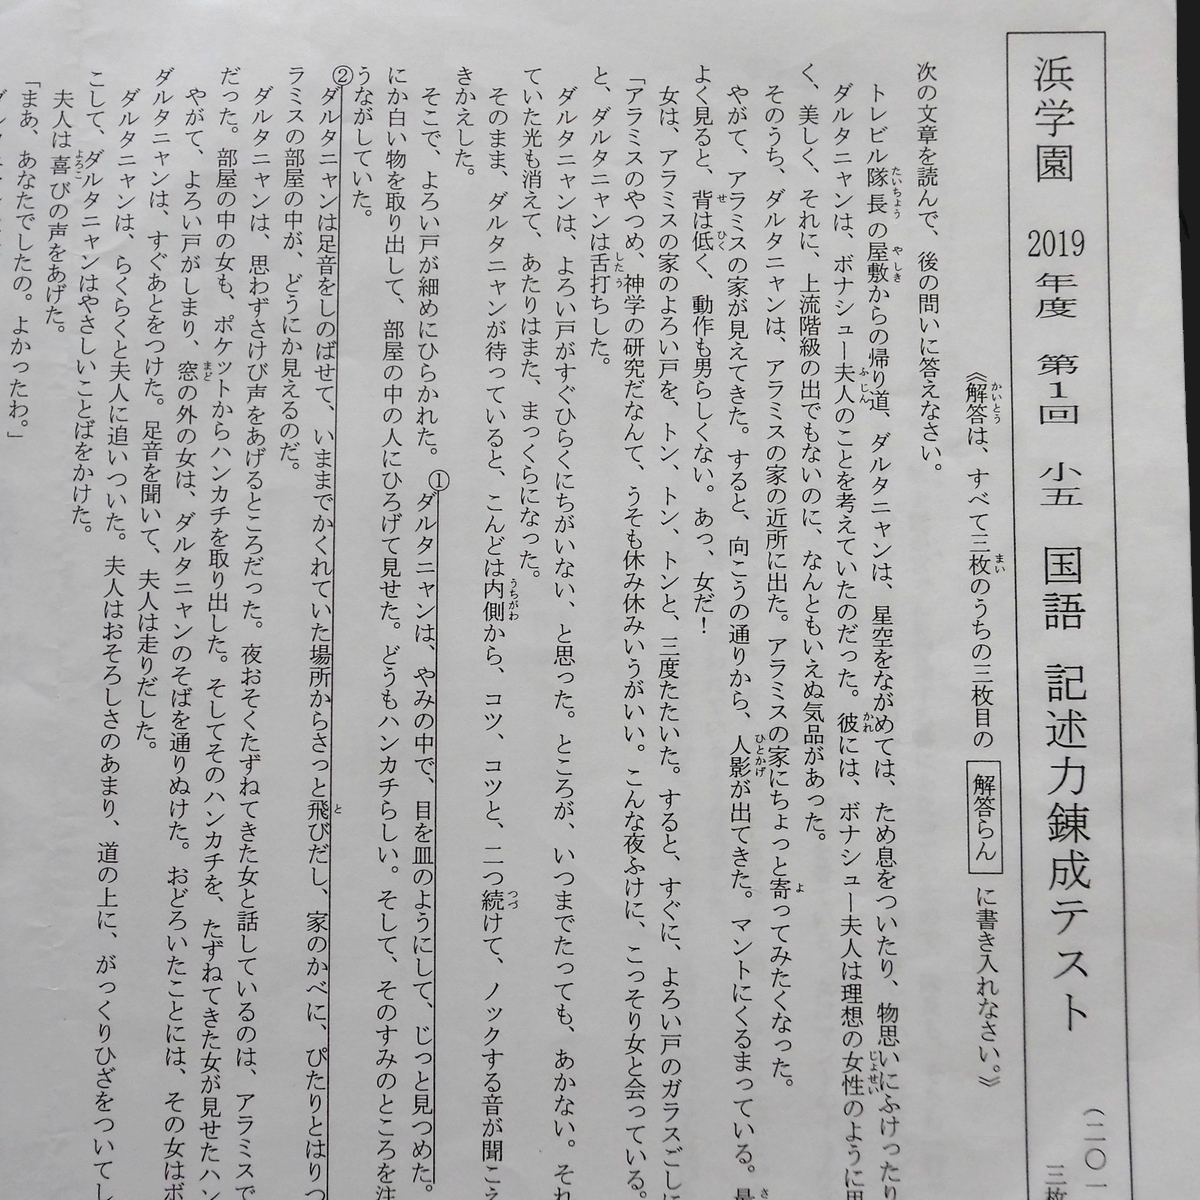 浜学園 2019年度 第1回 小五 国語 記述力錬成テスト
(二〇一
三枚
《解答は、すべて三枚のうちの三枚目の 解答らん に書き入れなさい。》
次の文章を読んで、後の問いに答えなさい。
トレビル隊長の屋敷からの帰り道、ダルタニャンは、星空をながめては、ため息をついたり、物思いにふけったり
ダルタニャンは、ボナシュー夫人のことを考えていたのだった。彼には、ボナシュー夫人は理想の女性のように思
く、美しく、それに、上流階級の出でもないのに、なんともいえぬ気品があった。
そのうち、ダルタニャンは、アラミスの家の近所に出た。アラミスの家にちょっと寄ってみたくなった。
やがて、アラミスの家が見えてきた。すると、向こうの通りから、人影が出てきた。マントにくるまっている。最
よく見ると、背は低く、動作も男らしくない。あっ、女だ!
女は、アラミスの家のよろい戸を、トン、トン、トンと、三度たたいた。すると、すぐに、よろい戸のガラスごしに
「アラミスのやつめ、神学の研究だなんて、うそも休み休みいうがいい。こんな夜ふけに、こっそり女と会っている。
と、ダルタニャンは舌打ちした。
ダルタニャンは、よろい戸がすぐひらくにちがいない、と思った。ところが、いつまでたっても、あかない。それ
ていた光も消えて、あたりはまた、まっくらになった。
そのまま、ダルタニャンが待っていると、こんどは内側から、コツ、コツと、二つ続けて、ノックする音が聞こえ
きかえした。
そこで、よろい戸が細めにひらかれた。①ダルタニャンは、やみの中で、目を皿のようにして、じっと見つめた。
にか白い物を取り出して、部屋の中の人にひろげて見せた。どうもハンカチらしい。そして、そのすみのところを注
うながしていた。
②ダルタニャンは足音をしのばせて、いままでかくれていた場所からさっと飛びだし、家のかべに、ぴたりとはりつ
ラミスの部屋の中が、どうにか見えるのだ。
ダルタニャンは、思わずさけび声をあげるところだった。夜おそくたずねてきた女と話しているのは、アラミスで
だった。部屋の中の女も、ポケットからハンカチを取り出した。そしてそのハンカチを、たずねてきた女が見せたハン
やがて、よろい戸がしまり、窓の外の女は、ダルタニャンのそばを通りぬけた。おどろいたことには、その女はボ
ダルタニャンは、すぐあとをつけた。足音を聞いて、夫人は走りだした。
ダルタニャンは、らくらくと夫人に追いついた。夫人はおそろしさのあまり、道の上に、がっくりひざをついてし
こして、ダルタニャンはやさしいことばをかけた。
夫人は喜びの声をあげた。
「まあ、あなたでしたの。よかったわ。」